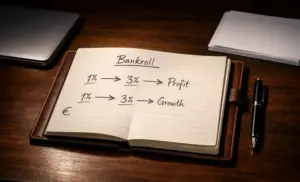 Bankroll
1% → 3% → Profit
1% → 3% → Growth
€